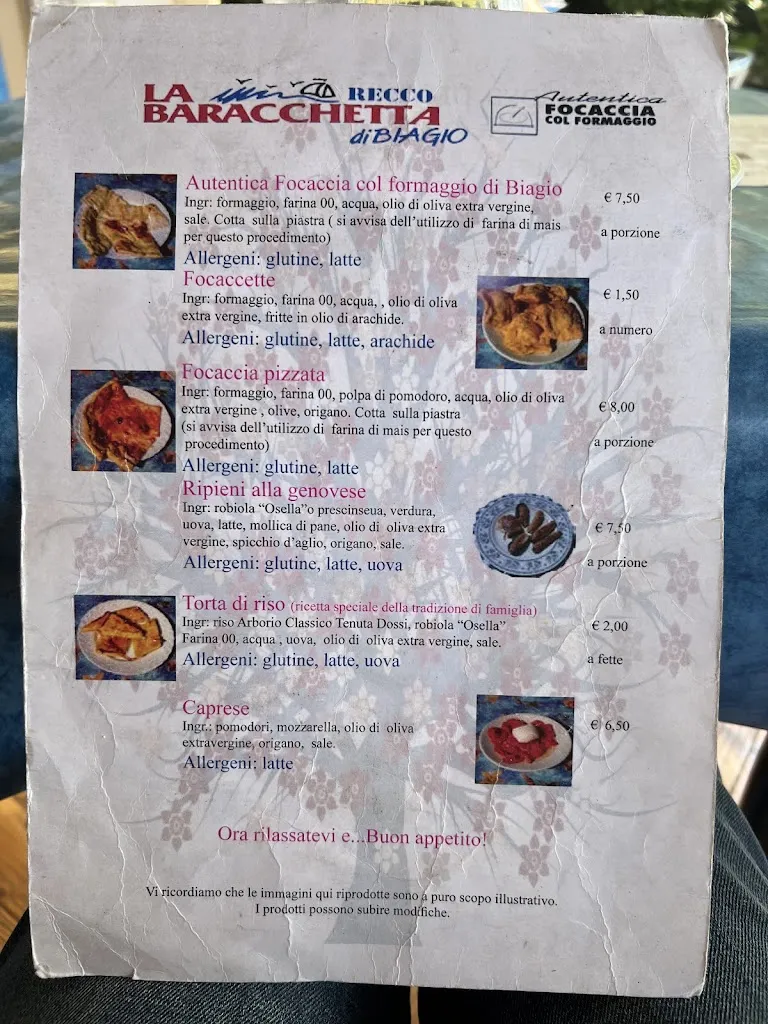 LA RECCO
BARACCHETTA
di BIAGIO
Autentica
FOCACCIA
COL FORMAGGIO
Autentica Focaccia col formaggio di Biagio
Ingr: formaggio, farina 00, acqua, olio di oliva extra vergine,
sale. Cotta sulla piastra ( si avvisa dell'utilizzo di farina di mais
per questo procedimento)
Allergeni: glutine, latte
€ 7,50
a porzione
Focaccette
Ingr: formaggio, farina 00, acqua, , olio di oliva
extra vergine, fritte in olio di arachide.
Allergeni: glutine, latte, arachide
€ 1,50
a numero
Focaccia pizzata
Ingr: formaggio, farina 00, polpa di pomodoro, acqua, olio di oliva
extra vergine , olive, origano. Cotta sulla piastra
(si avvisa dell'utilizzo di farina di mais per questo
procedimento)
Allergeni: glutine, latte
€ 8,00
a porzione
Ripieni alla genovese
Ingr: robiola "Osella"o prescinseua, verdura,
uova, latte, mollica di pane, olio di oliva extra
vergine, spicchio d'aglio, origano, sale.
Allergeni: glutine, latte, uova
€ 7,50
a porzione
Torta di riso (ricetta speciale della tradizione di famiglia)
Ingr: riso Arborio Classico Tenuta Dossi, robiola "Osella"
Farina 00, acqua , uova, olio di oliva extra vergine, sale.
Allergeni: glutine, latte, uova
€ 2,00
a fette
Caprese
Ingr.: pomodori, mozzarella, olio di oliva
extravergine, origano, sale.
Allergeni: latte
€ 6,50
Ora rilassatevi e...Buon appetito!
Vi ricordiamo che le immagini qui riprodotte sono a puro scopo illustrativo.
I prodotti possono subire modifiche.